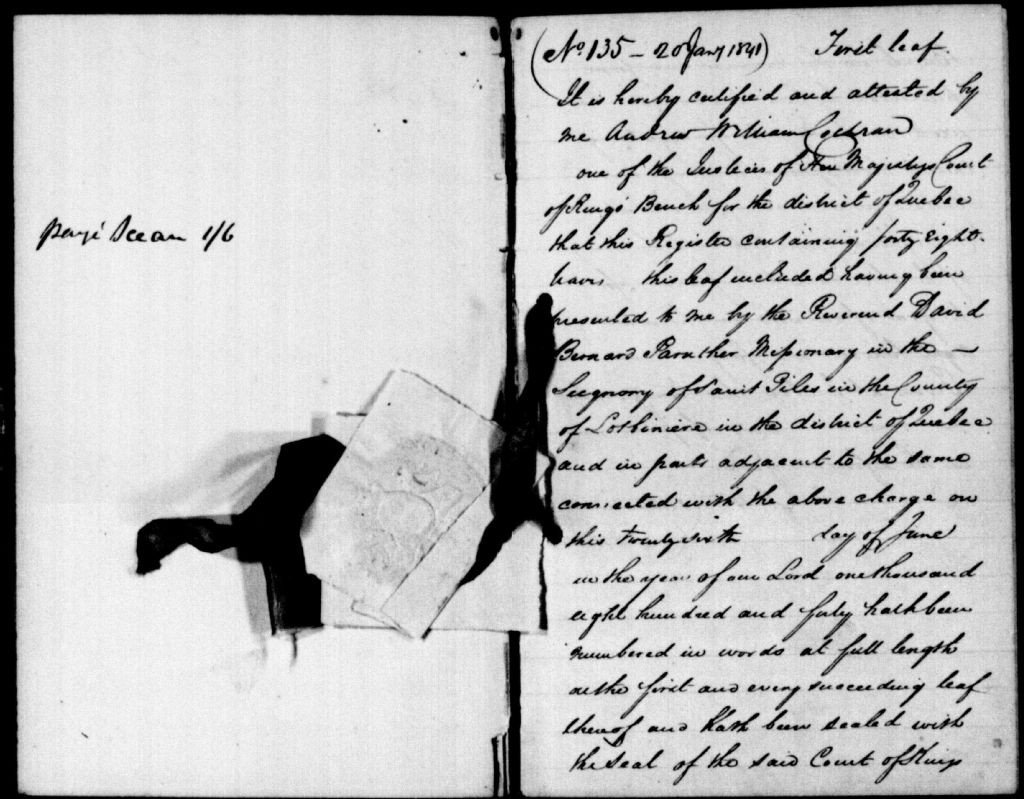 payé Sceau 1/6
(No. 135 – 20 Jany 1841) First leaf.
It is hereby certified and attested by
me Andrew William Cochran
one of the Justices of Her Majestys Court
of Kings Bench for the district of Quebec
that this Register containing forty Eight
leaves this leaf included having been
presented to me by the Reverend David
Bernard Parnther Missionary in the —
Seignory of Saint Giles in the County
of Lotbiniere in the district of Quebec
and in parts adjacent to the same
connected with the above charge on
this twenty sixth day of June
in the year of our Lord one thousand
eight hundred and forty hath been
numbered in words at full length
on the first and every succeeding leaf
thereof and hath been sealed with
the seal of the said Court of Kings